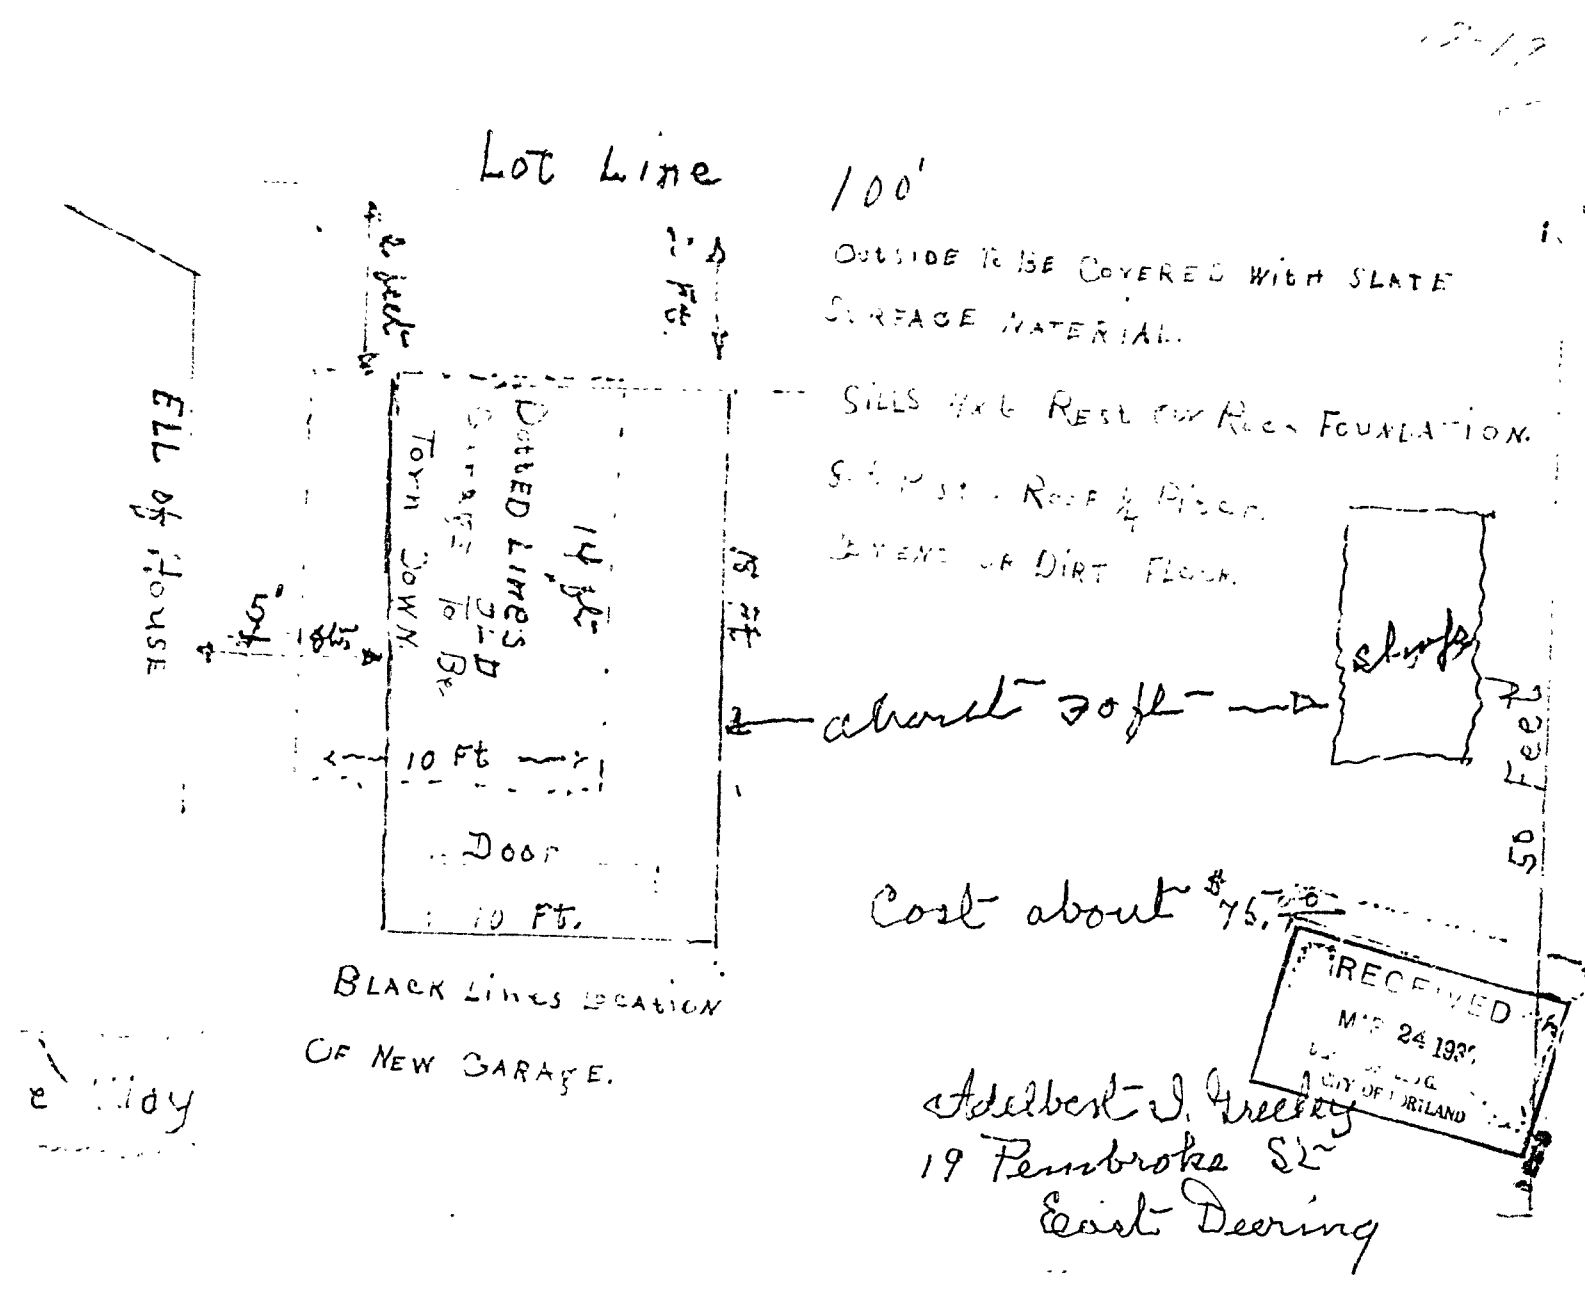 Lot Line
100'
2 feet
2 Ft.
OUTSIDE To BE COVERED WITH SLATE
SURFACE MATERIAL.
SILLS 4x6 REST ON ROCK FOUNDATION.
ROOF 1/4 PITCH.
OR DIRT FLOOR.
ELL of HOUSE
DOTTED LINES
OLD
GARAGE To BE
TORN DOWN.
14 ft
FT
5'
10 Ft
about 30 ft
50 Feet
Door
10 FT.
Cost about $75.00
BLACK LINES LOCATION
OF NEW GARAGE.
RECEIVED
MAR 24 193
CITY OF PORTLAND
Adelbert I. Greeley
19 Pembroke St
East Deering